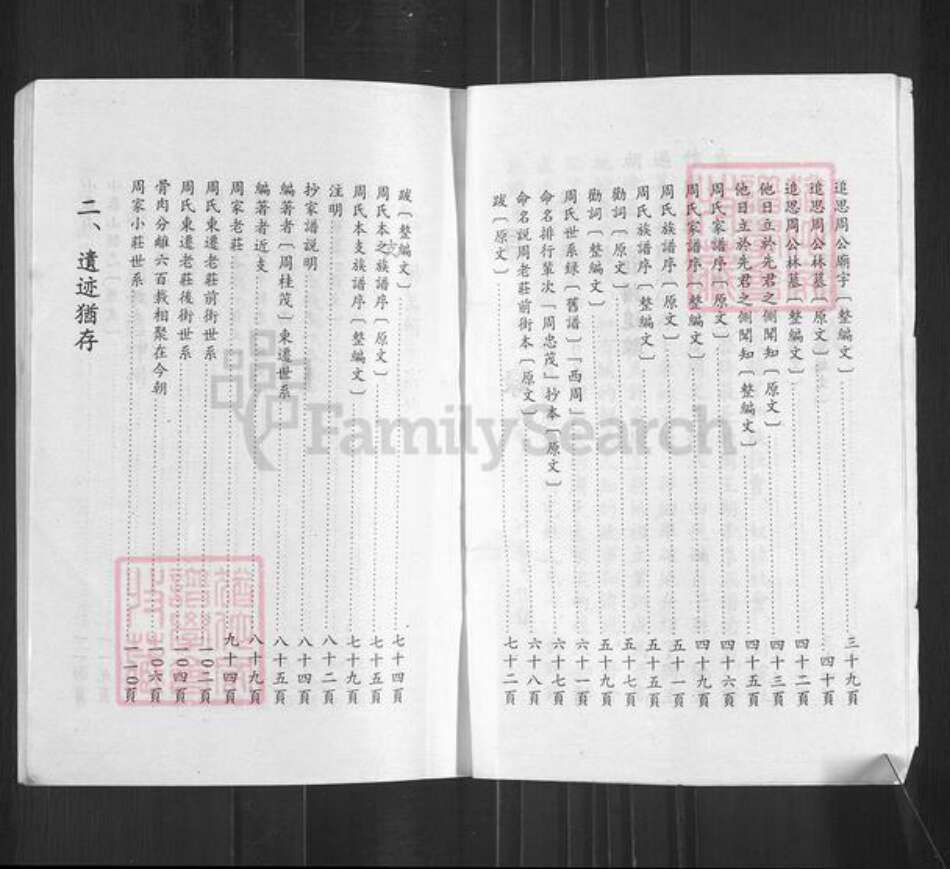 追思周公廟宇〔整編文〕 三十九頁
追思周公林墓〔原文〕 四十頁
追思周公林墓〔整編文〕 四十二頁
他日立於先君之側聞知〔原文〕 四十三頁
他日立於先君之側聞知〔整編文〕 四十五頁
周氏家譜序〔原文〕 四十六頁
周氏家譜序〔整編文〕 四十九頁
周氏族譜序〔原文〕 五十一頁
周氏族譜序〔整編文〕 五十五頁
勸詞〔原文〕 五十七頁
勸詞〔整編文〕 五十九頁
周氏世系録〔舊譜〕「西周」 六十一頁
命名排行輩次「周忠茂」抄本〔原文〕 六十七頁
命名説周老莊前街本〔原文〕 六十八頁
跋〔原文〕 七十二頁
跋〔整編文〕 七十四頁
周氏本支族譜序〔原文〕 七十五頁
周氏本支族譜序〔整編文〕 七十九頁
注明 八十二頁
抄家譜説明 八十四頁
編著者〔周桂茂〕東遷世系 八十五頁
編著者近支 八十九頁
周家老莊 九十四頁
周氏東遷老莊前街世系 一〇二頁
周氏東遷老莊後街世系 一〇四頁
骨肉分離六百載相聚在今朝 一〇六頁
周家小莊世系 一一〇頁
二、遺迹猶存
FamilySearch